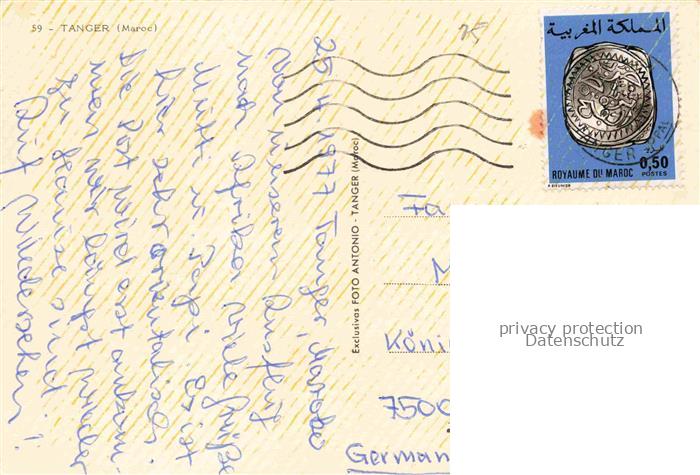 59 - TANGER (Maroc)
25
المملكة المغربية
0,50
ROYAUME DU MAROC POSTES
Exclusivas FOTO ANTONIO - TANGER (Maroc)
25 4 1977 Tanger, Marokko
Von unserem Ausflug
nach Afrika viele Grüße
Mutti u. Papi. Es ist
hier sehr orientalisch.
Die Post wird erst ankom-
men wenn wir längst wieder
zu Hause sind!
Auf Wiedersehen!
Fa
M
Köni
7500
German
privacy protection
Datenschutz